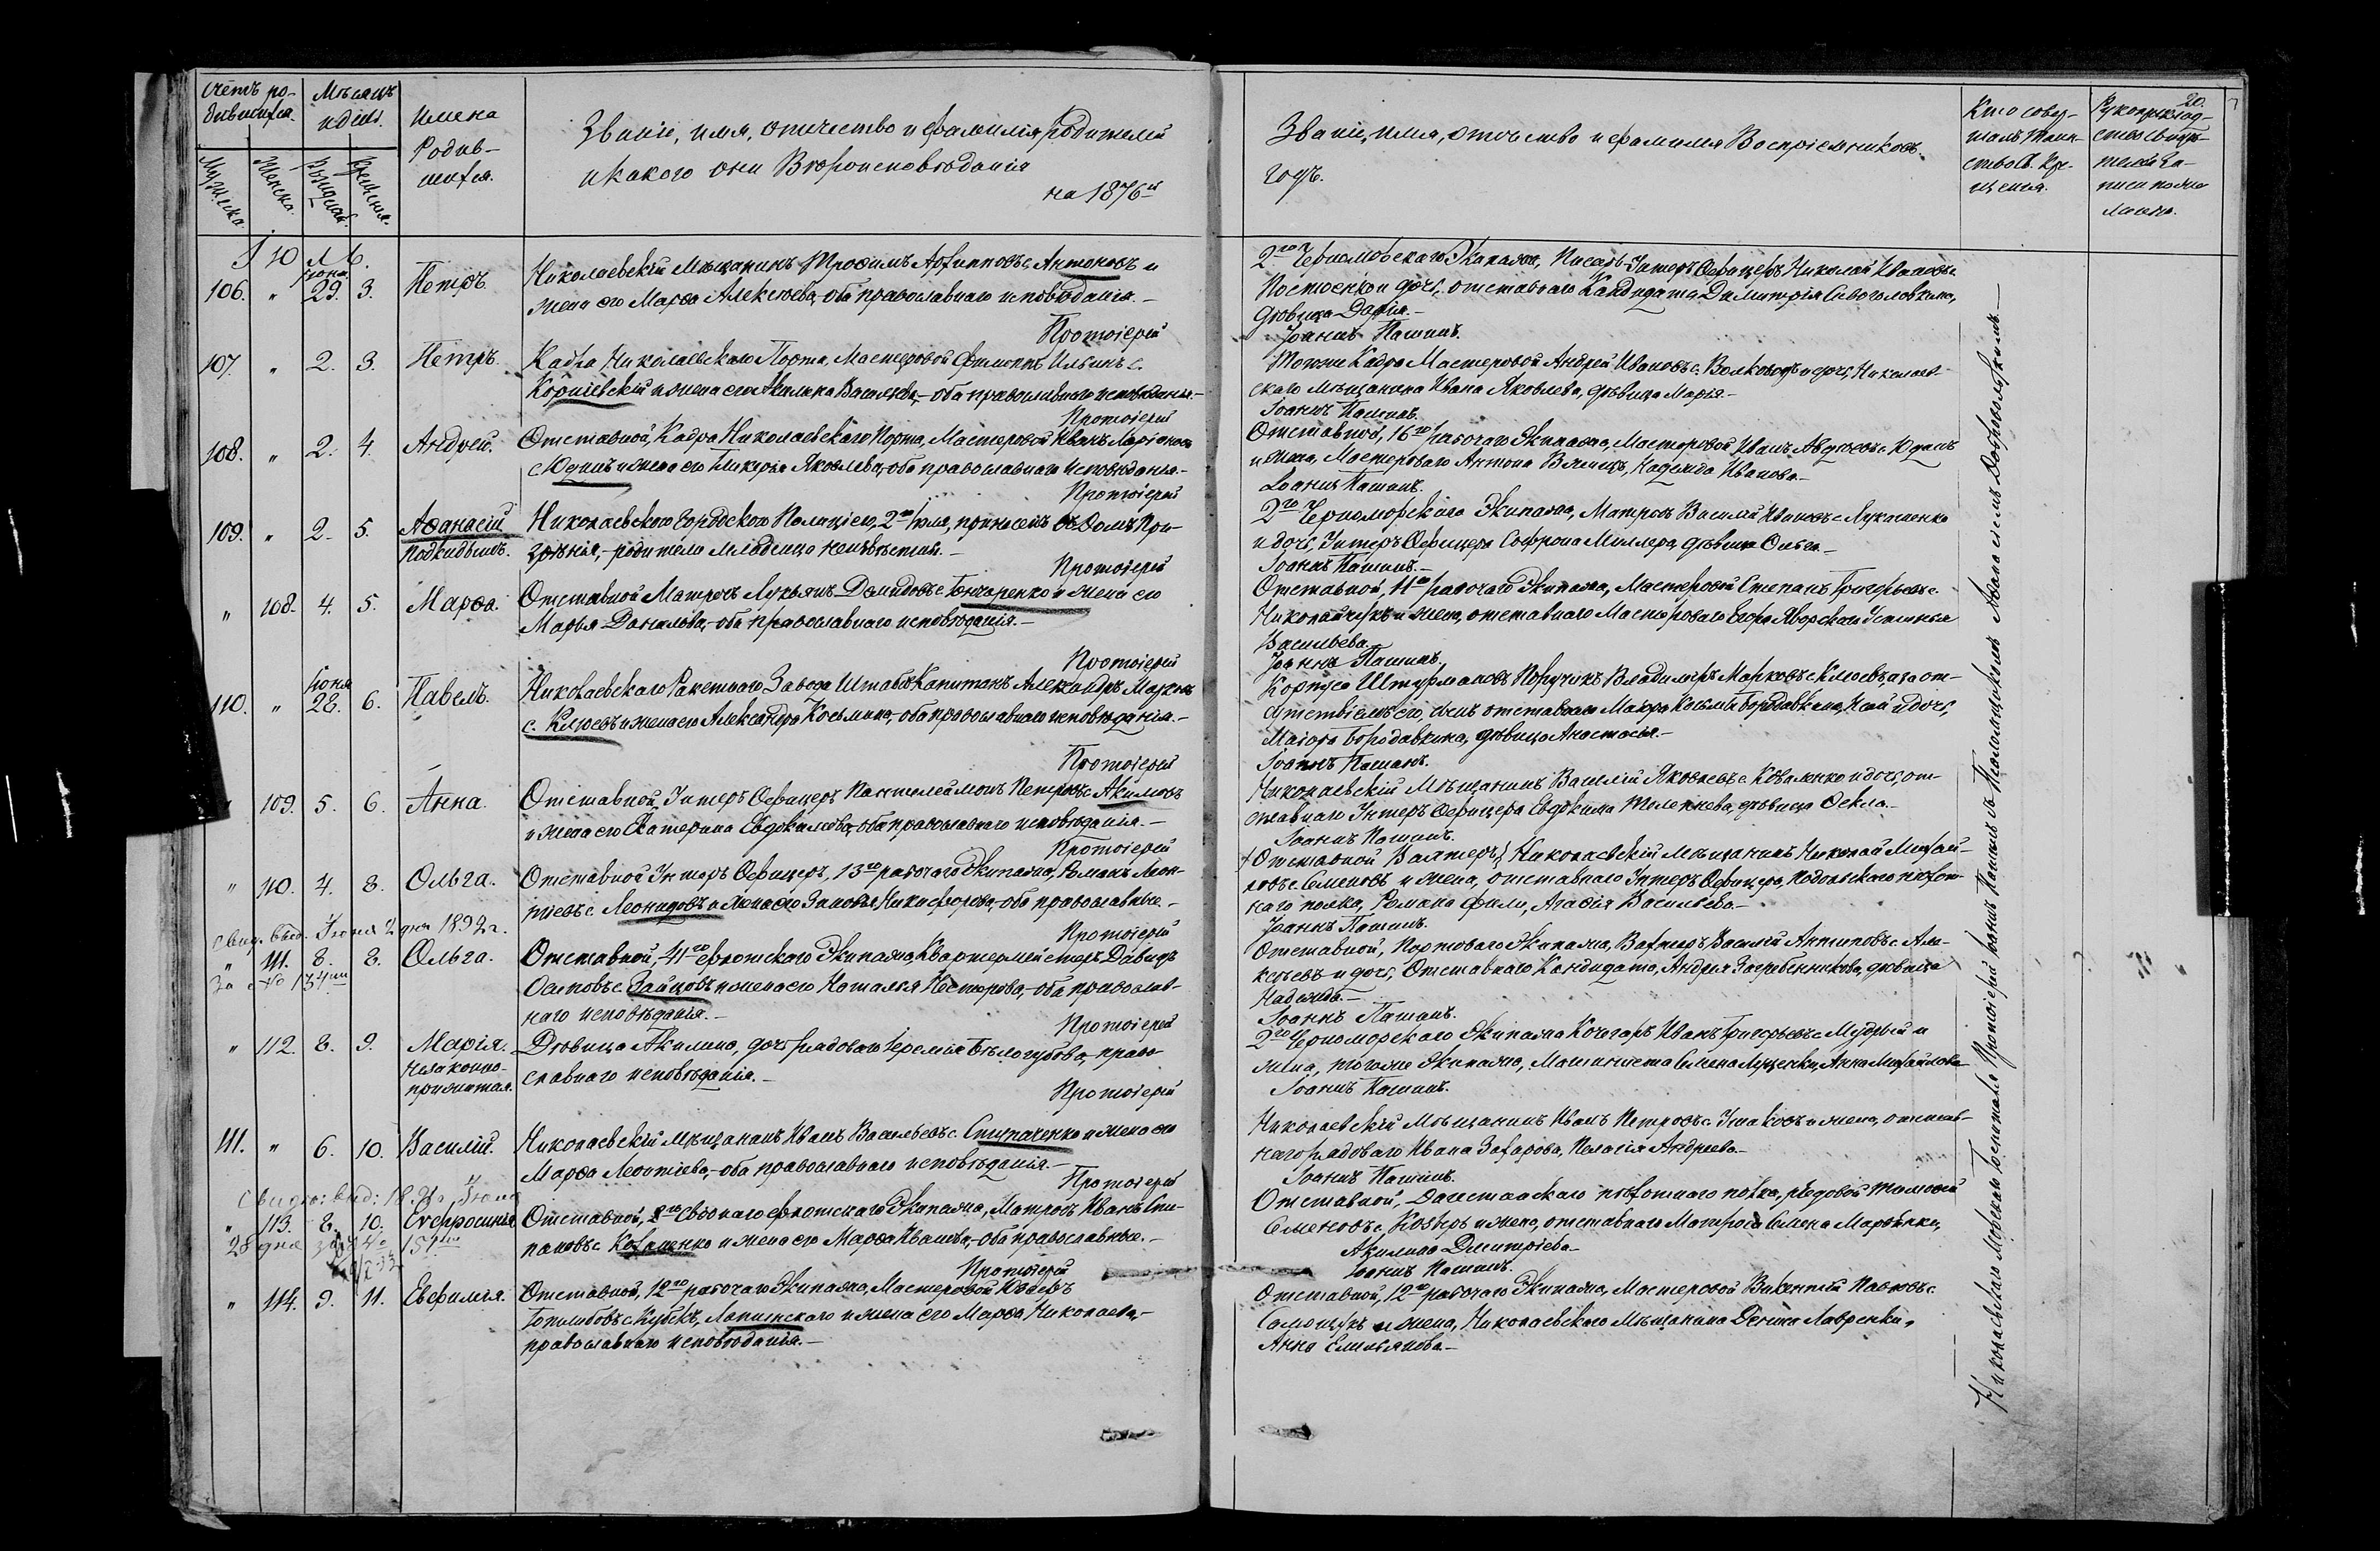 Счетъ ро-
дившихся.
Мѣсяцъ
и день.
Имена
Родив-
шихся.
Мужска.
Женска.
Рожденія.
Крещенія.
Званіе, имя, отчество и фамилія родителей
и какого они Вѣроисповѣданія
на 1876й
Іюль.
Іюня
106. " 29. 3. Петръ.
Николаевскій Мѣщанинъ Трофимъ с. Антоновъ и
жена его Марѳа Алексѣева, оба православнаго исповѣданія.—
Протоіерей
107. " 2. 3. Петръ.
Кадра Николаевскаго Порта, Мастеровой Филиппъ Ильинъ с.
Корніевскій и жена его Акилина Васильева,- оба православнаго исповѣданія.-
Протоіерей
108. " 2. 4. Андрей.
Отставной, Кадра Николаевскаго Порта, Мастеровой Иванъ Ларіоновъ
с. Юдинъ и жена его Гликерія Яковлева, оба православнаго исповѣданія.-
Протоіерей
109. " 2. 5. Аѳанасій
подкидышъ.
Николаевскою Городскою Полиціею, 2го Іюля, принесенъ въ Домъ При-
зрѣнія,- родители младенца неизвѣстны.—
Протоіерей
" 108. 4. 5. Марѳа.
Отставной Матросъ Лукьянъ Демидовъ с. Гончаренко и жена его
Марья Данилова,- оба православнаго исповѣданія.—
Протоіерей
Іюня
110. " 28. 6. Павелъ.
Николаевскаго Ракетнаго Завода Штабсъ Капитанъ Александръ Марковъ
с. Клюевъ и жена его Александра Косьмина, оба православнаго исповѣданія.-
Протоіерей
109. 5. 6. Анна.
Отставной, Унтеръ Офицеръ Пантелеймонъ Петровъ с. Акимовъ
и жена его Екатерина Евдокимова, оба православнаго исповѣданія.—
Протоіерей
" 110. 4. 8. Ольга.
Отставной Унтеръ Офицеръ, 13го рабочаго Экипажа, Романъ Леон-
тіевъ с. Леонидовъ и жена его Зиновія Никифорова,- оба православные.-
Свид. выд. Іюня 2 дня 1892 г.
Протоіерей
" 111. 8. 8. Ольга.
За № 134мъ
Отставной, 41го флотскаго Экипажа, Квартермейстеръ Давидъ
Осиповъ с. Зайцовъ и жена его Наталья Нестерова,- оба православ-
наго исповѣданія.—
Протоіерей
" 112. 8. 9. Марія.
Незаконно-
прижитая.
Дѣвица Акилина, дочь рядоваго Іереміи Бѣлогубова, право-
славнаго исповѣданія.—
Протоіерей
111. " 6. 10. Василій.
Николаевскій мѣщанинъ Иванъ Васильевъ с. Ступаченко и жена его
Марѳа Леонтіева,- оба православнаго исповѣданія.—
Протоіерей
" 113. 8. 10. Евфросинія.
Отставной, 2го своднаго флотскаго Экипажа, Матросъ Иванъ Сте-
пановъ с. Коханенко и жена его Марѳа Иванова,- оба православные.—
28 дня за № 151мъ
Протоіерей
" 114. 9. 11. Евфимія.
Отставной, 12го рабочаго Экипажа, Мастеровой Іосифъ
с. Кубекъ, Лопинскаго и жена его Марѳа Николаева,-
православнаго исповѣданія.—
20.
Званіе, имя, отчество и фамилія Воспріемниковъ.
годъ.
Кто совер-
шалъ Таин-
ство Св. Кре-
щенія.
Рукоприклад-
ство Свидѣ-
телей за-
писи по же-
ланію.
2го Черноморскаго Экипажа, Писарь Унтеръ Офицеръ Николай Ивановъ с.
Постоенко и дочь, отставнаго Кандидата Димитрія Сивоголовкина,
дѣвица Дарія.—
Іоаннъ Пашинъ.
Тогоже Кадра Мастеровой Андрей Ивановъ с. Волковъ и дочь, Николаев-
скаго мѣщанина Ивана Яковлева, дѣвица Марья.—
Іоаннъ Пашинъ.
Отставной, 16го рабочаго Экипажа, Мастеровой Иванъ Авдѣевъ с. Юдинъ
и жена, Мастероваго Антона Надежда Иванова.—
Іоаннъ Пашинъ.
2го Черноморскаго Экипажа, Матросъ Василій Ивановъ с. Лукашенко
и дочь, Унтеръ Офицера Софрона Миллера, дѣвица Ольга.—
Іоаннъ Пашинъ.—
Отставной, 11го рабочаго Экипажа, Мастеровой Степанъ Григорьевъ с.
Николайчукъ и жена, отставнаго Мастероваго Егора Яворскаго Устинья
Васильева.
Іоаннъ Пашинъ.
Корпуса Штурмановъ Поручикъ Владиміръ Марковъ с. Клюевъ, а за от-
сутствіемъ его, сынъ отставнаго Маіора Косьмы Бородавкина, и дочь,
Маіора Бородавкина, дѣвица Анастасія.—
Іоаннъ Пашинъ.
Николаевскій Мѣщанинъ Василій Яковлевъ с. Коваленко и дочь, от-
ставнаго Унтеръ Офицера Евдокима дѣвица Ѳекла.—
Іоаннъ Пашинъ.
Отставной Вахтеръ, Николаевскій мѣщанинъ Николай Михай-
ловъ с. Семеновъ и жена, отставнаго Унтеръ Офицера, Подольскаго пѣхот-
наго полка, Романа Агафія Васильева.—
Іоаннъ Пашинъ.
Отставной, Портоваго Экипажа, Вахтеръ Василій Антиповъ с. Але-
ксѣевъ и дочь, Отставнаго Кандидата, Андрея Загребенникова, дѣвица
Надежда.—
Іоаннъ Пашинъ.
2го Черноморскаго Экипажа Кочегаръ Иванъ Григорьевъ с. Мудрый и
жена, тогоже Экипажа, Машиниста Семена Луценки, Анна Михайлова
Іоаннъ Пашинъ.
Николаевскій Мѣщанинъ Иванъ Петровъ с. Ушаковъ и жена, отстав-
наго рядоваго Ивана Захарова, Пелагія Андреева.—
Іоаннъ Пашинъ.
Отставной, Дагестанскаго пѣхотнаго полка, рядовой Тимофей
Семеновъ с. и жена, отставнаго Матроса Семена Марченка,
Акилина Дмитріева.—
Іоаннъ Пашинъ.
Отставной, 12го рабочаго Экипажа, Мастеровой Викентій Павловъ с.
Самощукъ и жена, Николаевскаго Мѣщанина Дениса Лавренки,
Анна Емельянова.—
Николаевскаго Морскаго Госпиталя Протоіерей Іоаннъ Пашинъ съ Псаломщикомъ Аѳанасіемъ Добровольскимъ.—